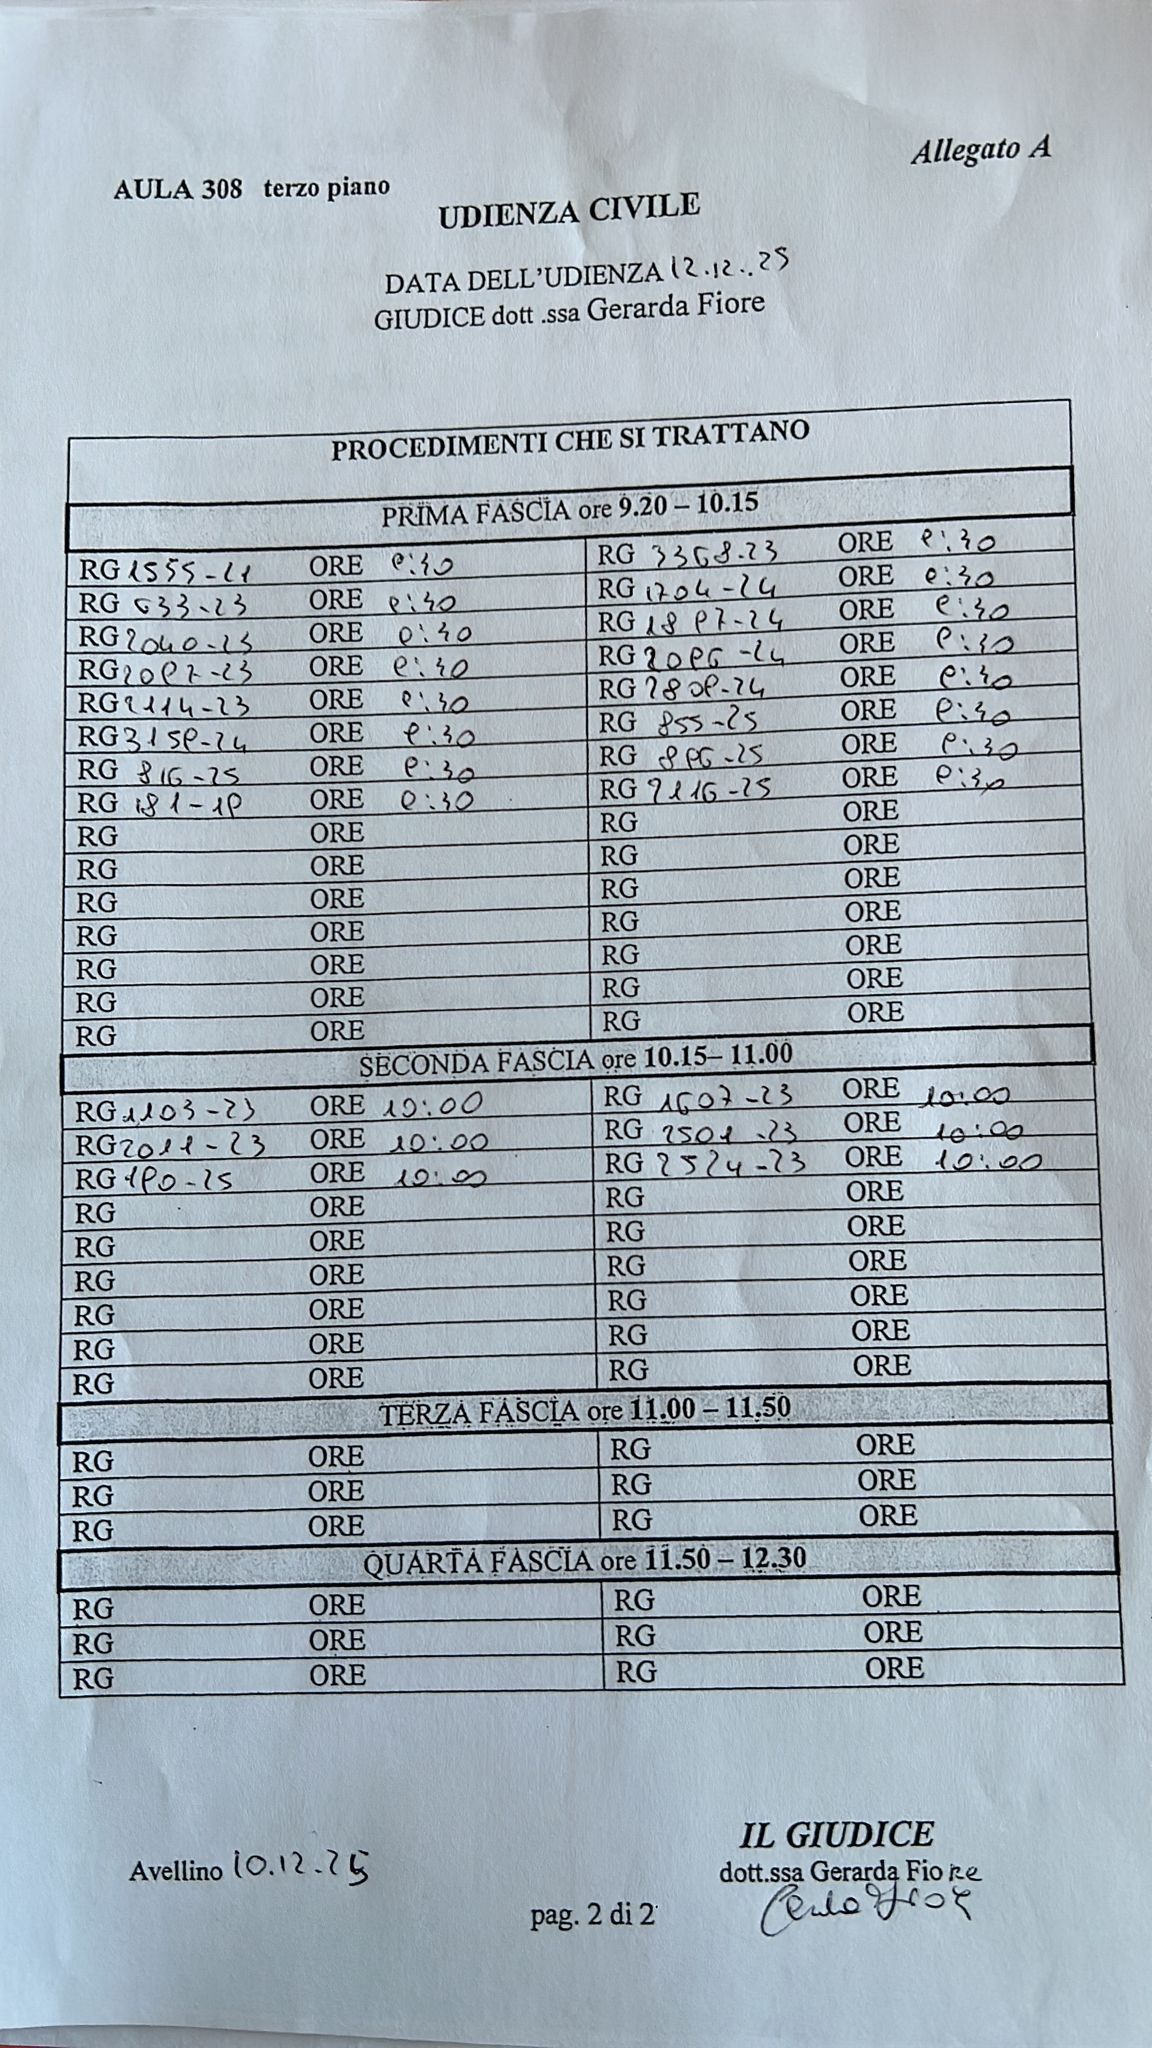 Allegato A
AULA 308 terzo piano
UDIENZA CIVILE
DATA DELL'UDIENZA 12.12..25
GIUDICE dott .ssa Gerarda Fiore
PROCEDIMENTI CHE SI TRATTANO
PRIMA FASCIA ore 9.20 – 10.15
RG 1555-21 ORE 9:30 RG 3368-23 ORE 9:30
RG 633-23 ORE 9:30 RG 1704-24 ORE 9:30
RG 2040-23 ORE 9:30 RG 1897-24 ORE 9:30
RG 2097-23 ORE 9:30 RG 2096-24 ORE 9:30
RG 2114-23 ORE 9:30 RG 2809-24 ORE 9:30
RG 3159-24 ORE 9:30 RG 855-25 ORE 9:30
RG 816-25 ORE 9:30 RG 896-25 ORE 9:30
RG 181-19 ORE 9:30 RG 2116-25 ORE 9:30
RG ORE RG ORE
RG ORE RG ORE
RG ORE RG ORE
RG ORE RG ORE
RG ORE RG ORE
RG ORE RG ORE
RG ORE RG ORE
SECONDA FASCIA ore 10.15– 11.00
RG 1103-23 ORE 10:00 RG 1607-23 ORE 10:00
RG 2011-23 ORE 10:00 RG 2501-23 ORE 10:00
RG 190-25 ORE 10:00 RG 2524-23 ORE 10:00
RG ORE RG ORE
RG ORE RG ORE
RG ORE RG ORE
RG ORE RG ORE
RG ORE RG ORE
RG ORE RG ORE
TERZA FASCIA ore 11.00 – 11.50
RG ORE RG ORE
RG ORE RG ORE
RG ORE RG ORE
QUARTA FASCIA ore 11.50 – 12.30
RG ORE RG ORE
RG ORE RG ORE
RG ORE RG ORE
IL GIUDICE
Avellino 10.12.25 dott.ssa Gerarda Fiore
pag. 2 di 2